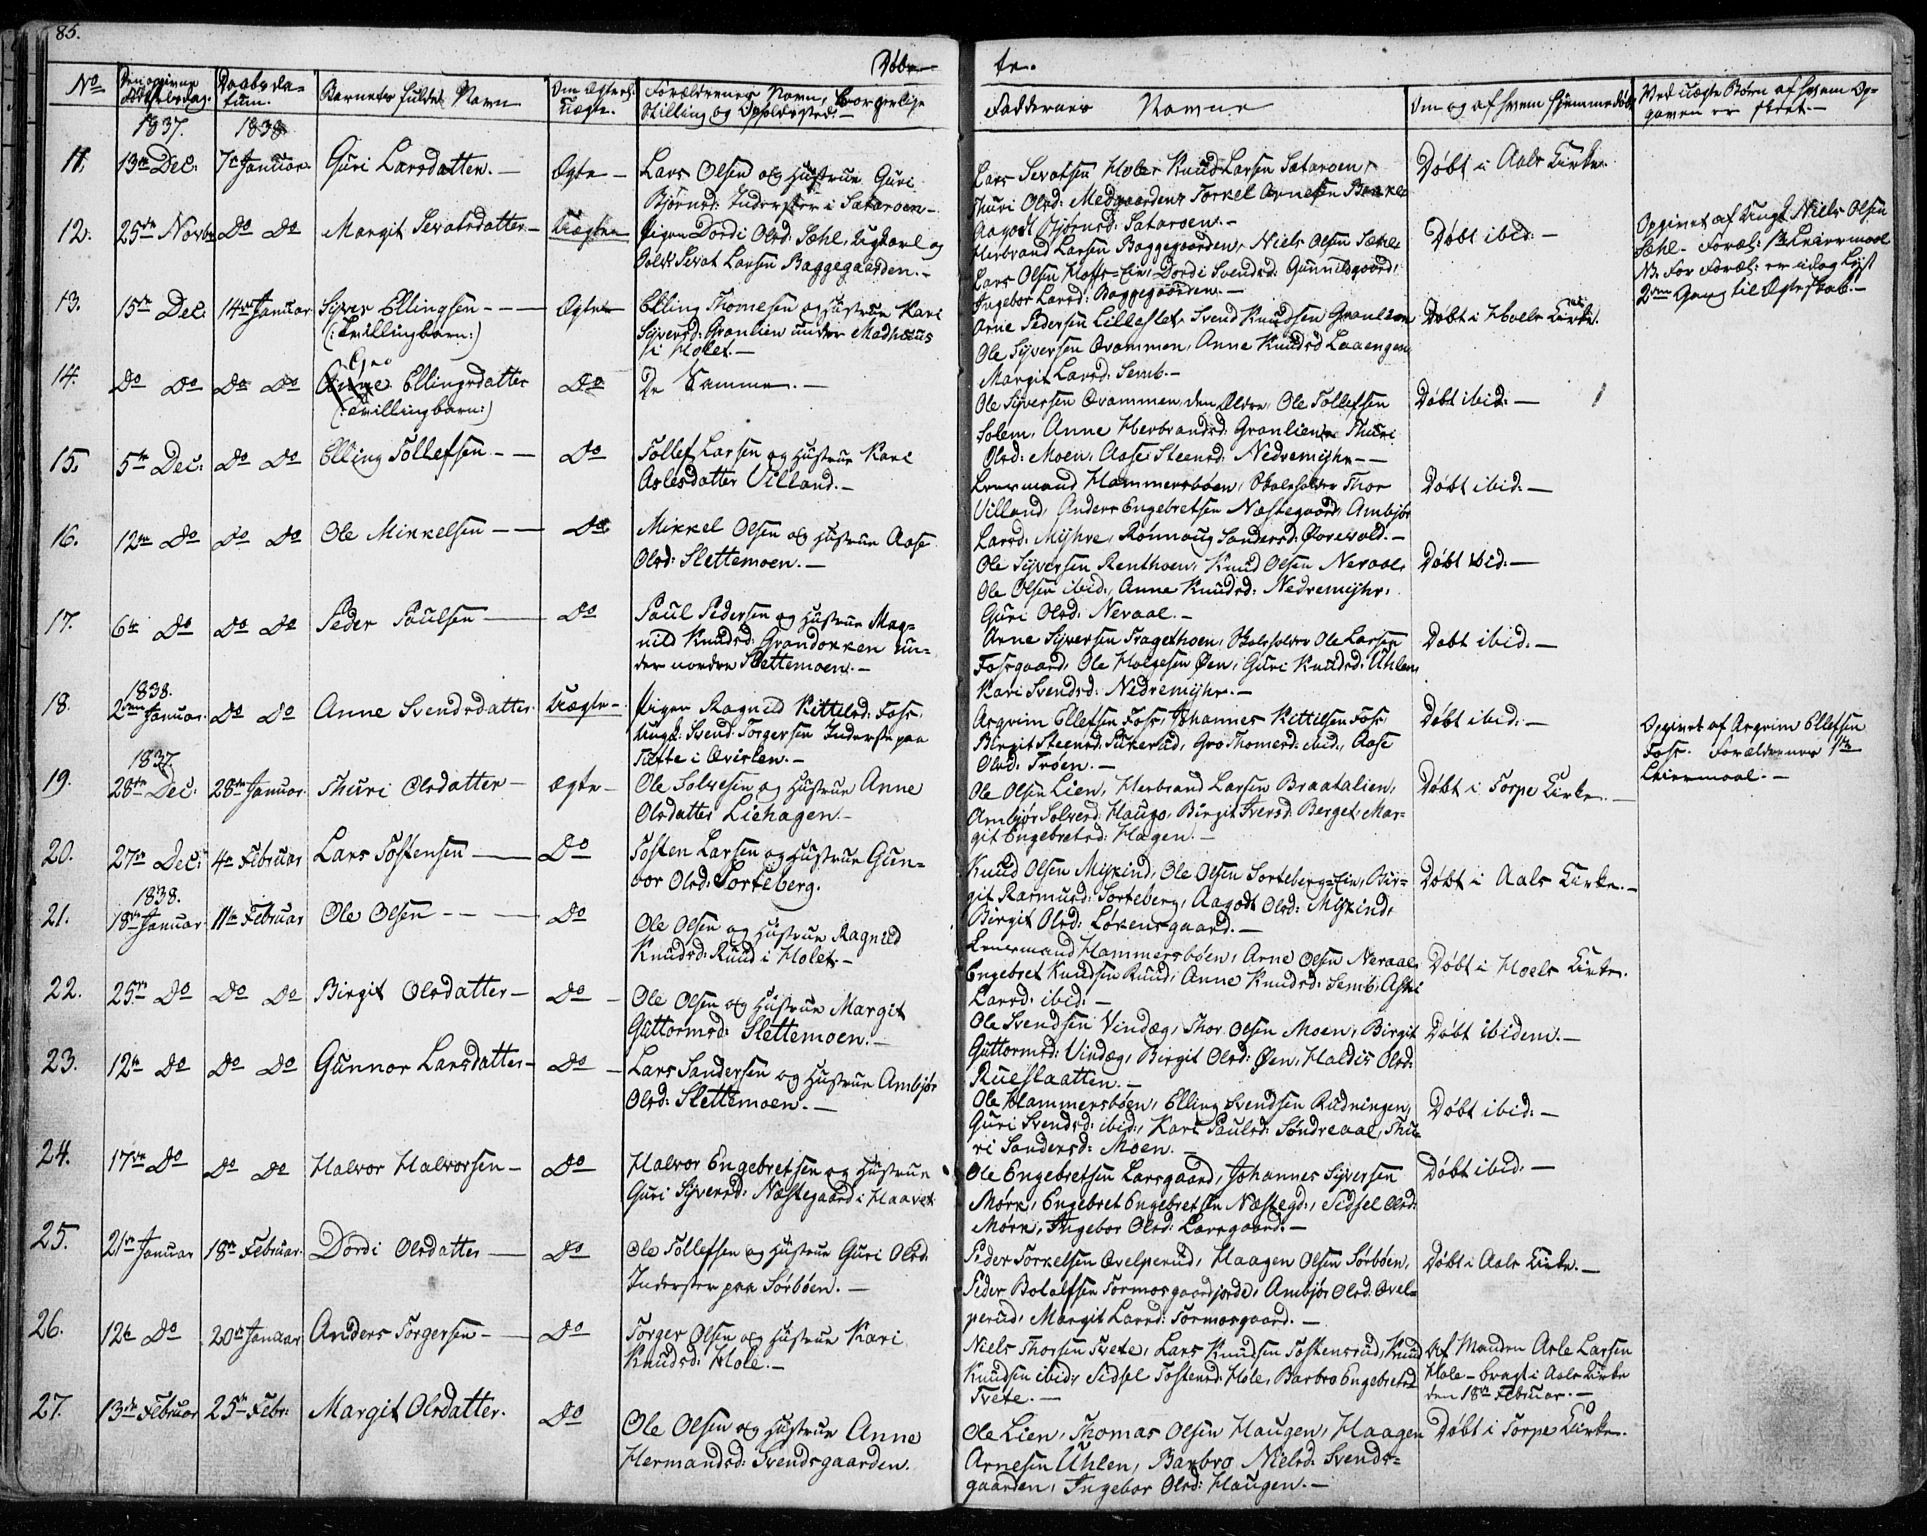 85.
Døbte.
No
Den opgivne Fødselsdag.
Daabsdatum.
Barnets fulde Navn
Om Ægte el. Uægte.
Forældrenes Navn, borgerlige Stilling og Opholdssted.—
Faddernes Navne
Om og af hvem hjemmedøbt
Ved uægte Børn af hvem Opgaven er skeet.—
1837. 1838
11. 13de Dec: 7de Januar Guri Larsdatter.— Ægte —
Lars Olsen og Hustrue Guri
Bjørnsd: Inderster i Sataroen.—
Lars Sevatsen Hole, Knud Larsen Sataroen,
Thuri Olsd: Medgaarden, Torkel Arnesen Bakke
Aagodt Bjørnsd: Sataroen.—
Døbt i Aals Kirke.
12. 25de Novbr Do Do Margit Sevatsdatter — Uægte
Pigen Dordi Olsd: Sæhl, Ugkarl og
Soldt Sevat Larsen Baggegaarden.—
Herbrand Larsen Baggegaarden, Niels Olsen Sæhle
Lars Olsen Hofs-Eie, Dordi Svendsd: Gunnildgaard,
Ingebor Larsd: Baggegaarden.—
Døbt ibid:—
Opgivet af Ungk Niels Olsen
Sæhl. Foræl: 1ste Leiermaal
NB. For Foræl: er idag lyst
2den Gang til Ægteskab.—
13. 15de Dec: 14de Januar Syver Ellingsen — — —
(: Tvillingbarn :)
Ægte
Elling Thomesen og Hustrue Kari
Syversd: Granlien under Madhuus
i Holet.—
Arne Pedersen Lilleslet, Svend Knudsen Granlien
Ole Syversen Qvammen, Anne Knudsd Laaengen
Margit Larsd: Semb.—
Døbt i Hoels Kirke.
14. Do Do Do Do
Gro
Anne Ellingsdatter
(: Tvillingbarn :)
Do
De Samme.—
Ole Syversen Qvammen, den Ældre, Ole Tollefsen
Solem, Anne Herbrandsd: Granlien, Thuri
Olsd: Moen, Aase Steensd: Nedremyhr — —
Døbt ibid:—
15. 5te Dec: Do Do Elling Tollefsen — — Do
Tollef Larsen og Hustrue Kari
Aslesdatter Villand.—
Leensmand Hammersbøen, Skoleholder Thor
Villand, Anders Engebretsen Næstegaard, Ambjør
Larsd: Myhre, Rønnaug Sandersd: Øvrevold.—
Døbt ibid:—
16. 12te Do Do Do Ole Mikkelsen — — Do
Mikkel Olsen og Hustrue Aase
Olsd: Slettemoen.—
Ole Syversen Renthoen, Knud Olsen Neraal,
Ole Olsen ibid:, Anne Knudsd: Nedremyhr,
Guri Olsd: Neraal.—
Døbt ibid:—
17. 6te Do Do Do Peder Paulsen — Do
Paul Pedersen og Hustrue Mag-
nild Knudsd: Grandokken un-
der nordre Slettemoen.—
Arne Syversen Tragethoen, Skoleholder Ole Larsen
Fosgaard, Ole Holgesen Øen, Guri Knudsd: Uhlen,
Kari Svendsd: Nedremyhr.—
Døbt ibid:—
1838.
18. 2den Januar Do Do Anne Svendsdatter Uægte —
Pigen Ragnild Kittilsd: Foss,
Ungk: Svend Torgersen Inderst paa
Tufte i Qvislen.—
Asgrim Ellefsen Foss, Johannes Kittilsen Foss
Birgit Steensd: Sukerud, Gro Thomesd: ibid:, Aase
Olsd: Trøen.—
Døbt ibid:—
Opgivet af Asgrim Ellefsen
Foss. Forældrenes 1ste
Leiermaal.—
1837.
19. 28de Dec: 28de Januar Thuri Olsdatter — Ægte —
Ole Solvesen og Hustrue Anne
Olsdatter Liehagen.—
Ole Olsen Lien, Herbrand Larsen Braatalien,
Ambjør Solvesd: Haugo, Birgit Iversd: Berget, Mar-
git Engebretsd: Hagen.—
Døbt i Torpe Kirke.—
20. 27de Dec: 4de Februar Lars Tostensen — Do
Tosten Larsen og Hustrue Gun-
vor Olsd: Sorteberg.
Knud Olsen Myking, Ole Olsen Sorteberg-Eie, Bir-
git Rasmusd: Sorteberg, Aagodt Olsd: Myking,
Birgit Olsd: Løkensgaard.—
Døbt i Aals Kirke.—
1838.
21. 18de Januar 11te Februar Ole Olsen — — — Do
Ole Olsen og Hustrue Ragnild
Knudsd: Ruud i Holet.—
Leensmand Hammersbøen, Arne Olsen Neraal,
Engebret Knudsen Ruud, Anne Knudsd: Semb, Aslri
Larsd: ibid:—
Døbt i Hoels Kirke.
22. 25de Do Do Do Birgit Olsdatter — Do —
Ole Olsen og Hustrue Margit
Guttormsd: Slettemoen.—
Ole Svendsen Vindæg, Thor Olsen Moen, Birgit
Guttormsd: Vindæg, Birgit Olsd: Øen, Haldis Olsd:
Rueslaatten.—
Døbt ibidem.—
23. 12te Do Do Do Gunnor Larsdatter — Do —
Lars Sandersen og Hustrue Ambjør
Olsd: Slettemoen.—
Ole Hammersbøen, Elling Svendsen Rudningen,
Guri Svendsd: ibid:, Kari Paulsd: Søndreaal, Thu-
ri Sandersd: Moen.—
Døbt ibid:—
24. 17de Do Do Do Halvor Halvorsen — Do
Halvor Engebretsen og Hustrue
Guri Syversd: Næstegaard i Haavet
Ole Engebretsen Larsgaard, Johannes Syversen
Mørk, Engebret Engebretsen Næstegd:, Sidsel Olsd:
Mørk, Ingebor Olsd: Larsgaard.—
Døbt ibid:—
25. 21de Januar 18de Februar Dordi Olsdatter — Do
Ole Tollefsen og Hustrue Guri Olsd:
Inderster paa Sørbøen.—
Peder Torkelsen Qvelprud, Haagen Olsen Sørbøen,
Peder Botolfsen Tormosgaardjorde, Ambjør Olsd: Qvel-
perud, Margit Larsd: Tormosgaard.—
Døbt i Aals Kirke.—
26. 12te Do 20de Januar Anders Torgersen — Do
Torger Olsen og Hustrue Kari
Knudsd: Hole.—
Niels Thorsen Tvete, Lars Knudsen Tostensrud, Knud
Knudsen ibid:, Sidsel Tostensd: Hole, Barbro Engebretsd
Tvete.—
Af Manden Asle Larsen
Hole — bragt i Aals Kirke
den 18de Februar.—
27. 13de Februar 25de Febr: Margit Olsdatter. Do
Ole Olsen og Hustrue Anne
Hermandsd: Svendsgaarden.
Ole Lien, Thomas Olsen Haugen, Haagen
Arnesen Uhlen, Barbro Nielsd: Svends-
gaarden, Ingebor Olsd: Haugen.—
Døbt i Torpe Kirke.